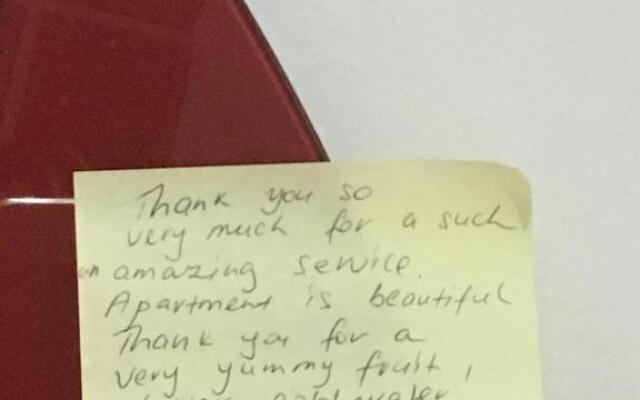 Thank you so
very much for a such
an amazing service.
Apartment is beautiful
Thank you for a
very yummy fruit,
cold water